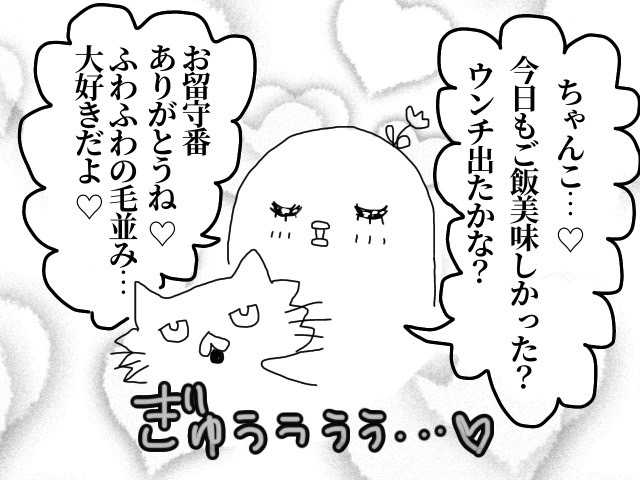 ちゃんこ…♡
今日もご飯美味しかった?
ウンチ出たかな?
お留守番
ありがとうね♡
ふわふわの毛並み…
大好きだよ♡
ぎゅぅぅぅぅ…♡